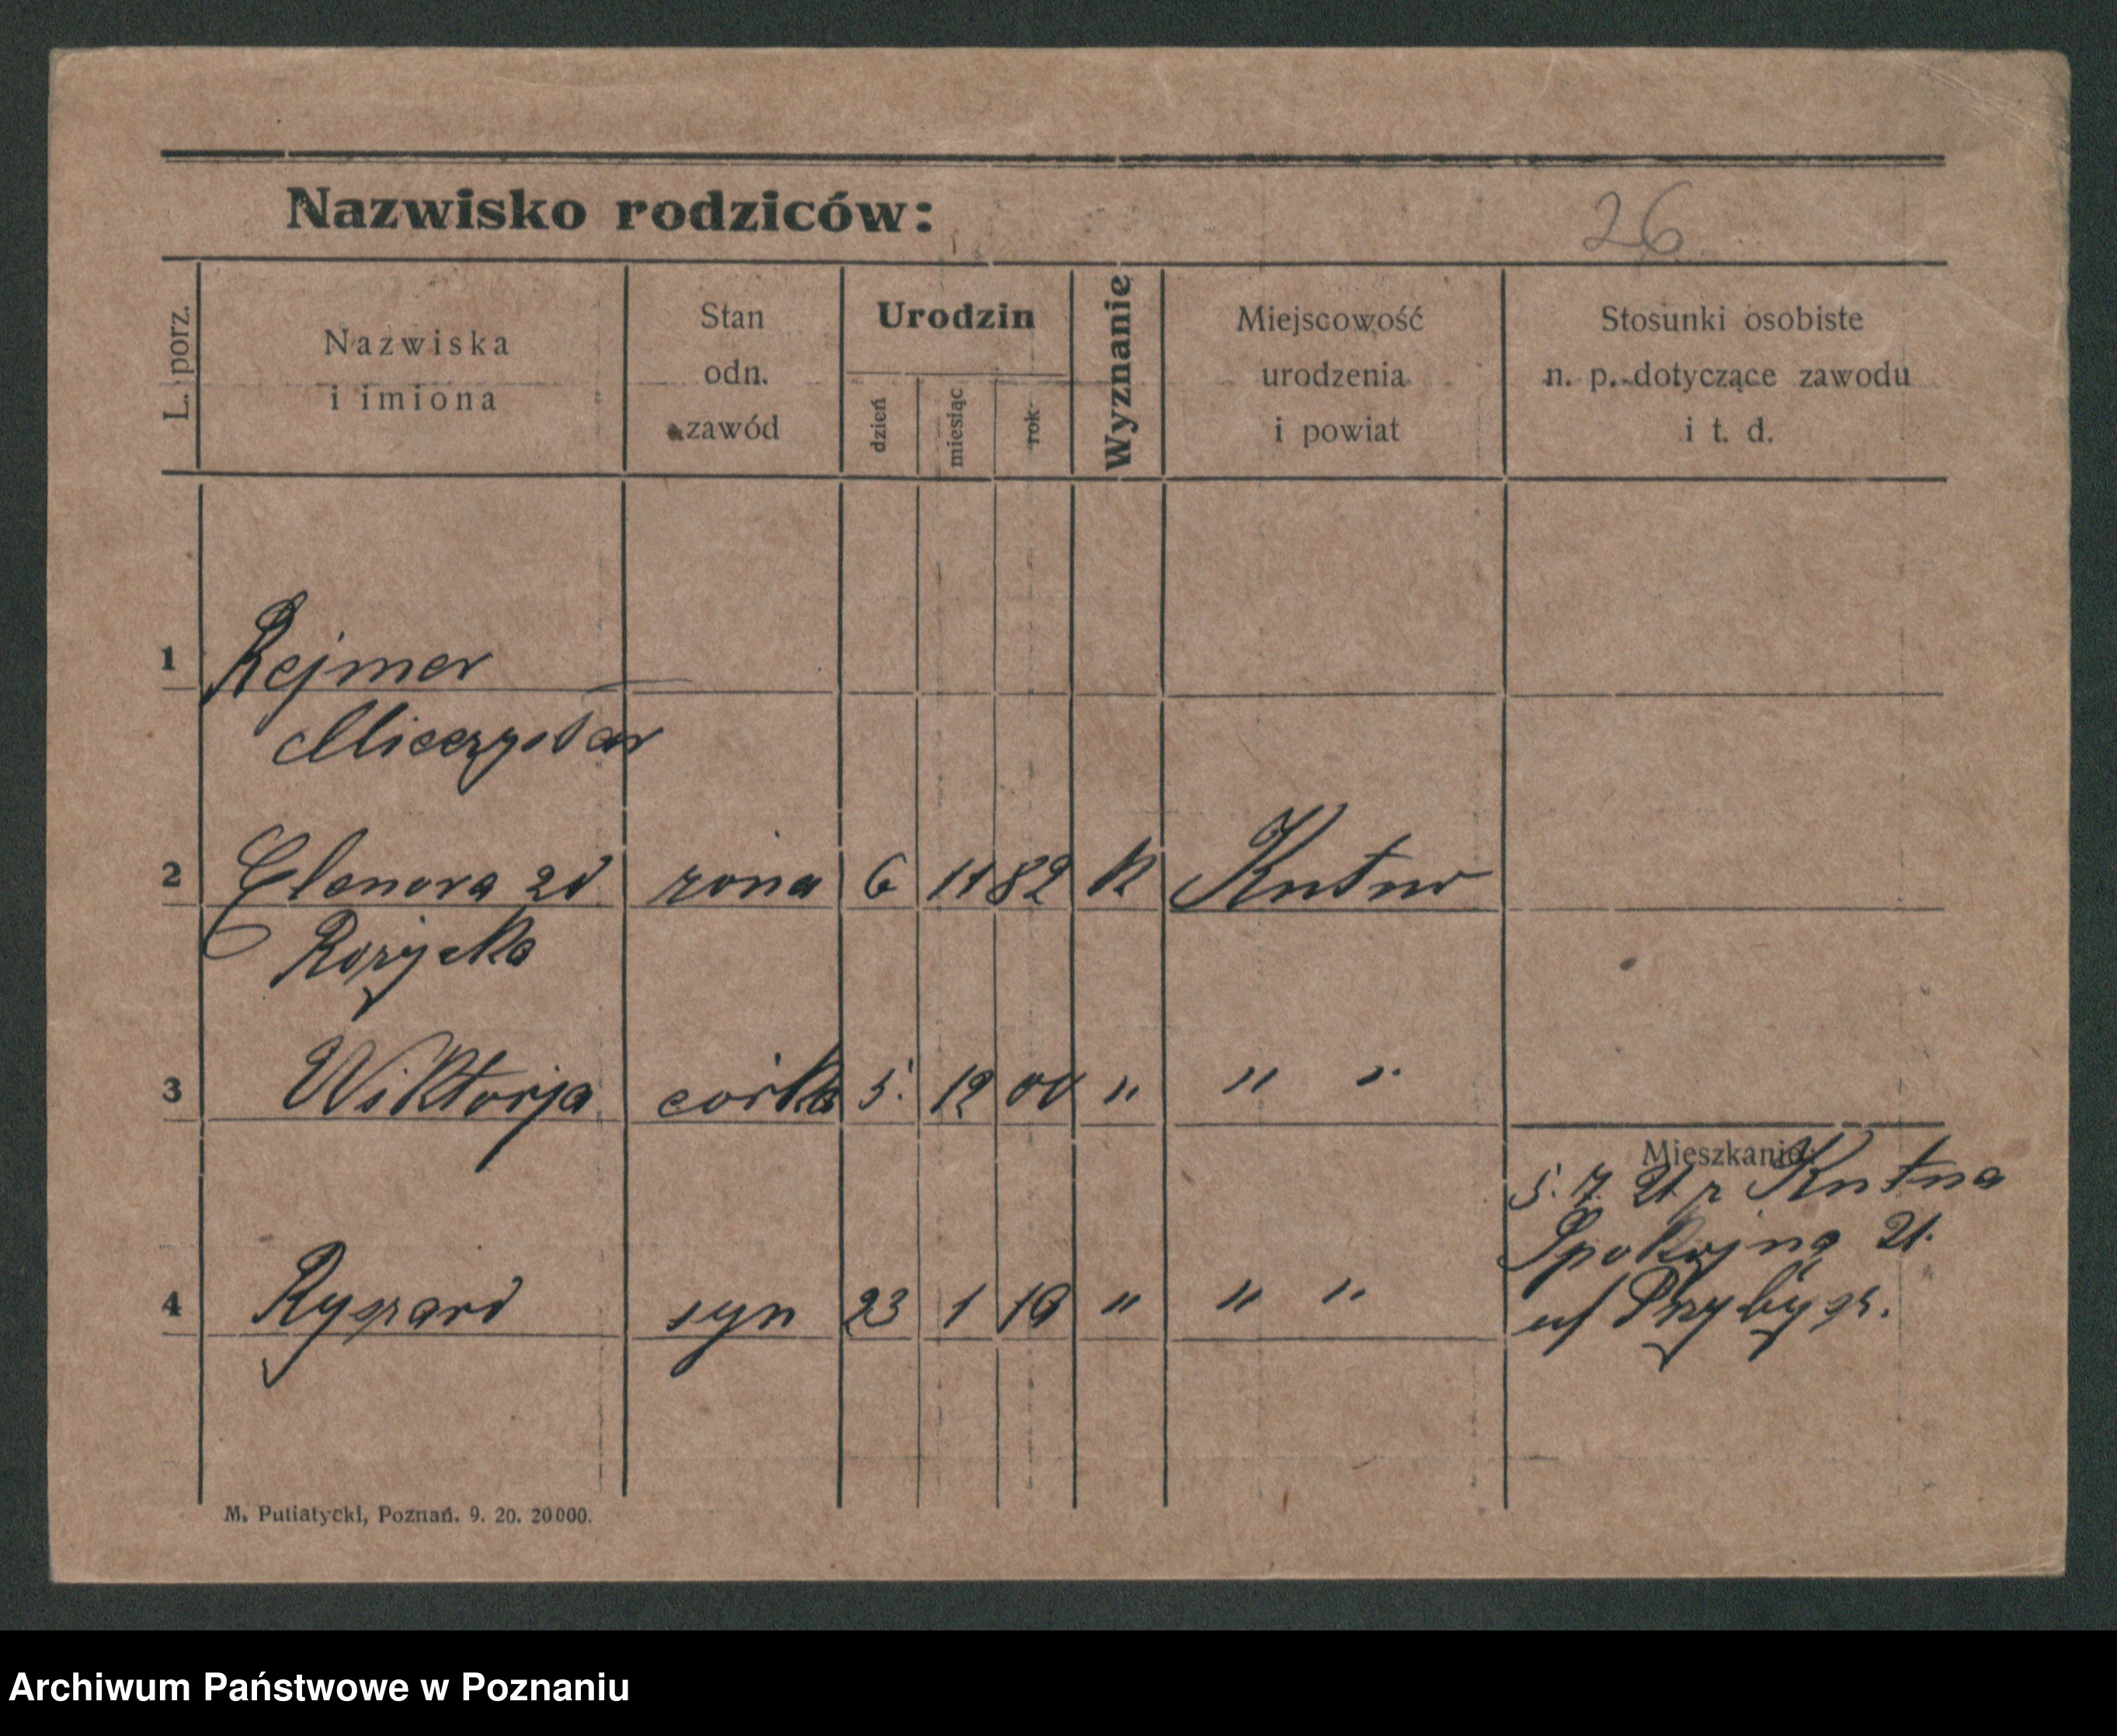 Nazwisko rodziców:
26
L. porz.
Nazwiska
i imiona
Stan
odn.
zawód
Urodzin
dzień
miesiąc
rok
Wyznanie
Miejscowość
urodzenia
i powiat
Stosunki osobiste
n. p. dotyczące zawodu
i t. d.
1 Rejmer
Mieczysław
2 Elenora zd żona 6 11 82 k Kutno
Rożycka
3 Wiktorja córka 5. 12 00 " " "
Mieszkanie:
5. 7. 21 z Kutna
Spokojna 21.
4 Ryszard syn 23 1 10 " " "
u/ Przybysz.
M. Putiatycki, Poznań. 9. 20. 20000.
Archiwum Państwowe w Poznaniu